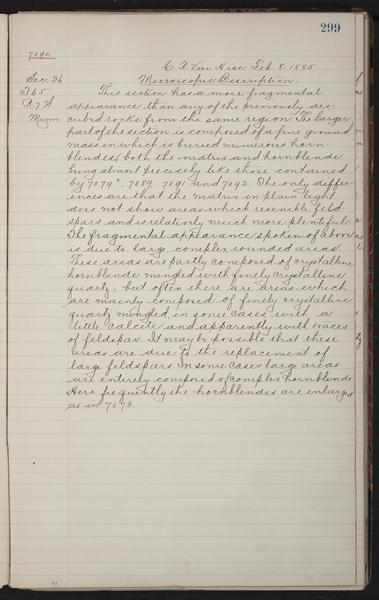 299
7090
C. R. Van Hise, Feb. 8. 1885
Sec. 36
T 65
R 7 W
Minn
Microscopic Description.
This section has a more fragmental
appearance than any of the previously des-
cribed rocks from the same region. The larger
part of the section is composed of a fine ground
mass in which is buried numerous horn-
blendes, both the matrix and hornblende
being almost precisely like those contained
by 7079, 7089 7091 and 7092. The only differ-
ences are that the matrix in plain light
does not show areas which resemble feld
spars and is relatively much more plentiful.
The fragmental appearance spoken of above
is due to large complex rounded areas.
These areas are partly composed of crystalline
hornblende mingled with finely crystalline
quartz; but often there are areas which
are mainly composed of finely crystalline
quartz mingled in some cases with a
little calcite and apparently with traces
of feldspar. It may be possible that these
areas are due to the replacement of
large feldspars. In some cases large areas
are entirely composed of complex hornblende.
Here frequently the hornblendes are enlarged
as in 7073.